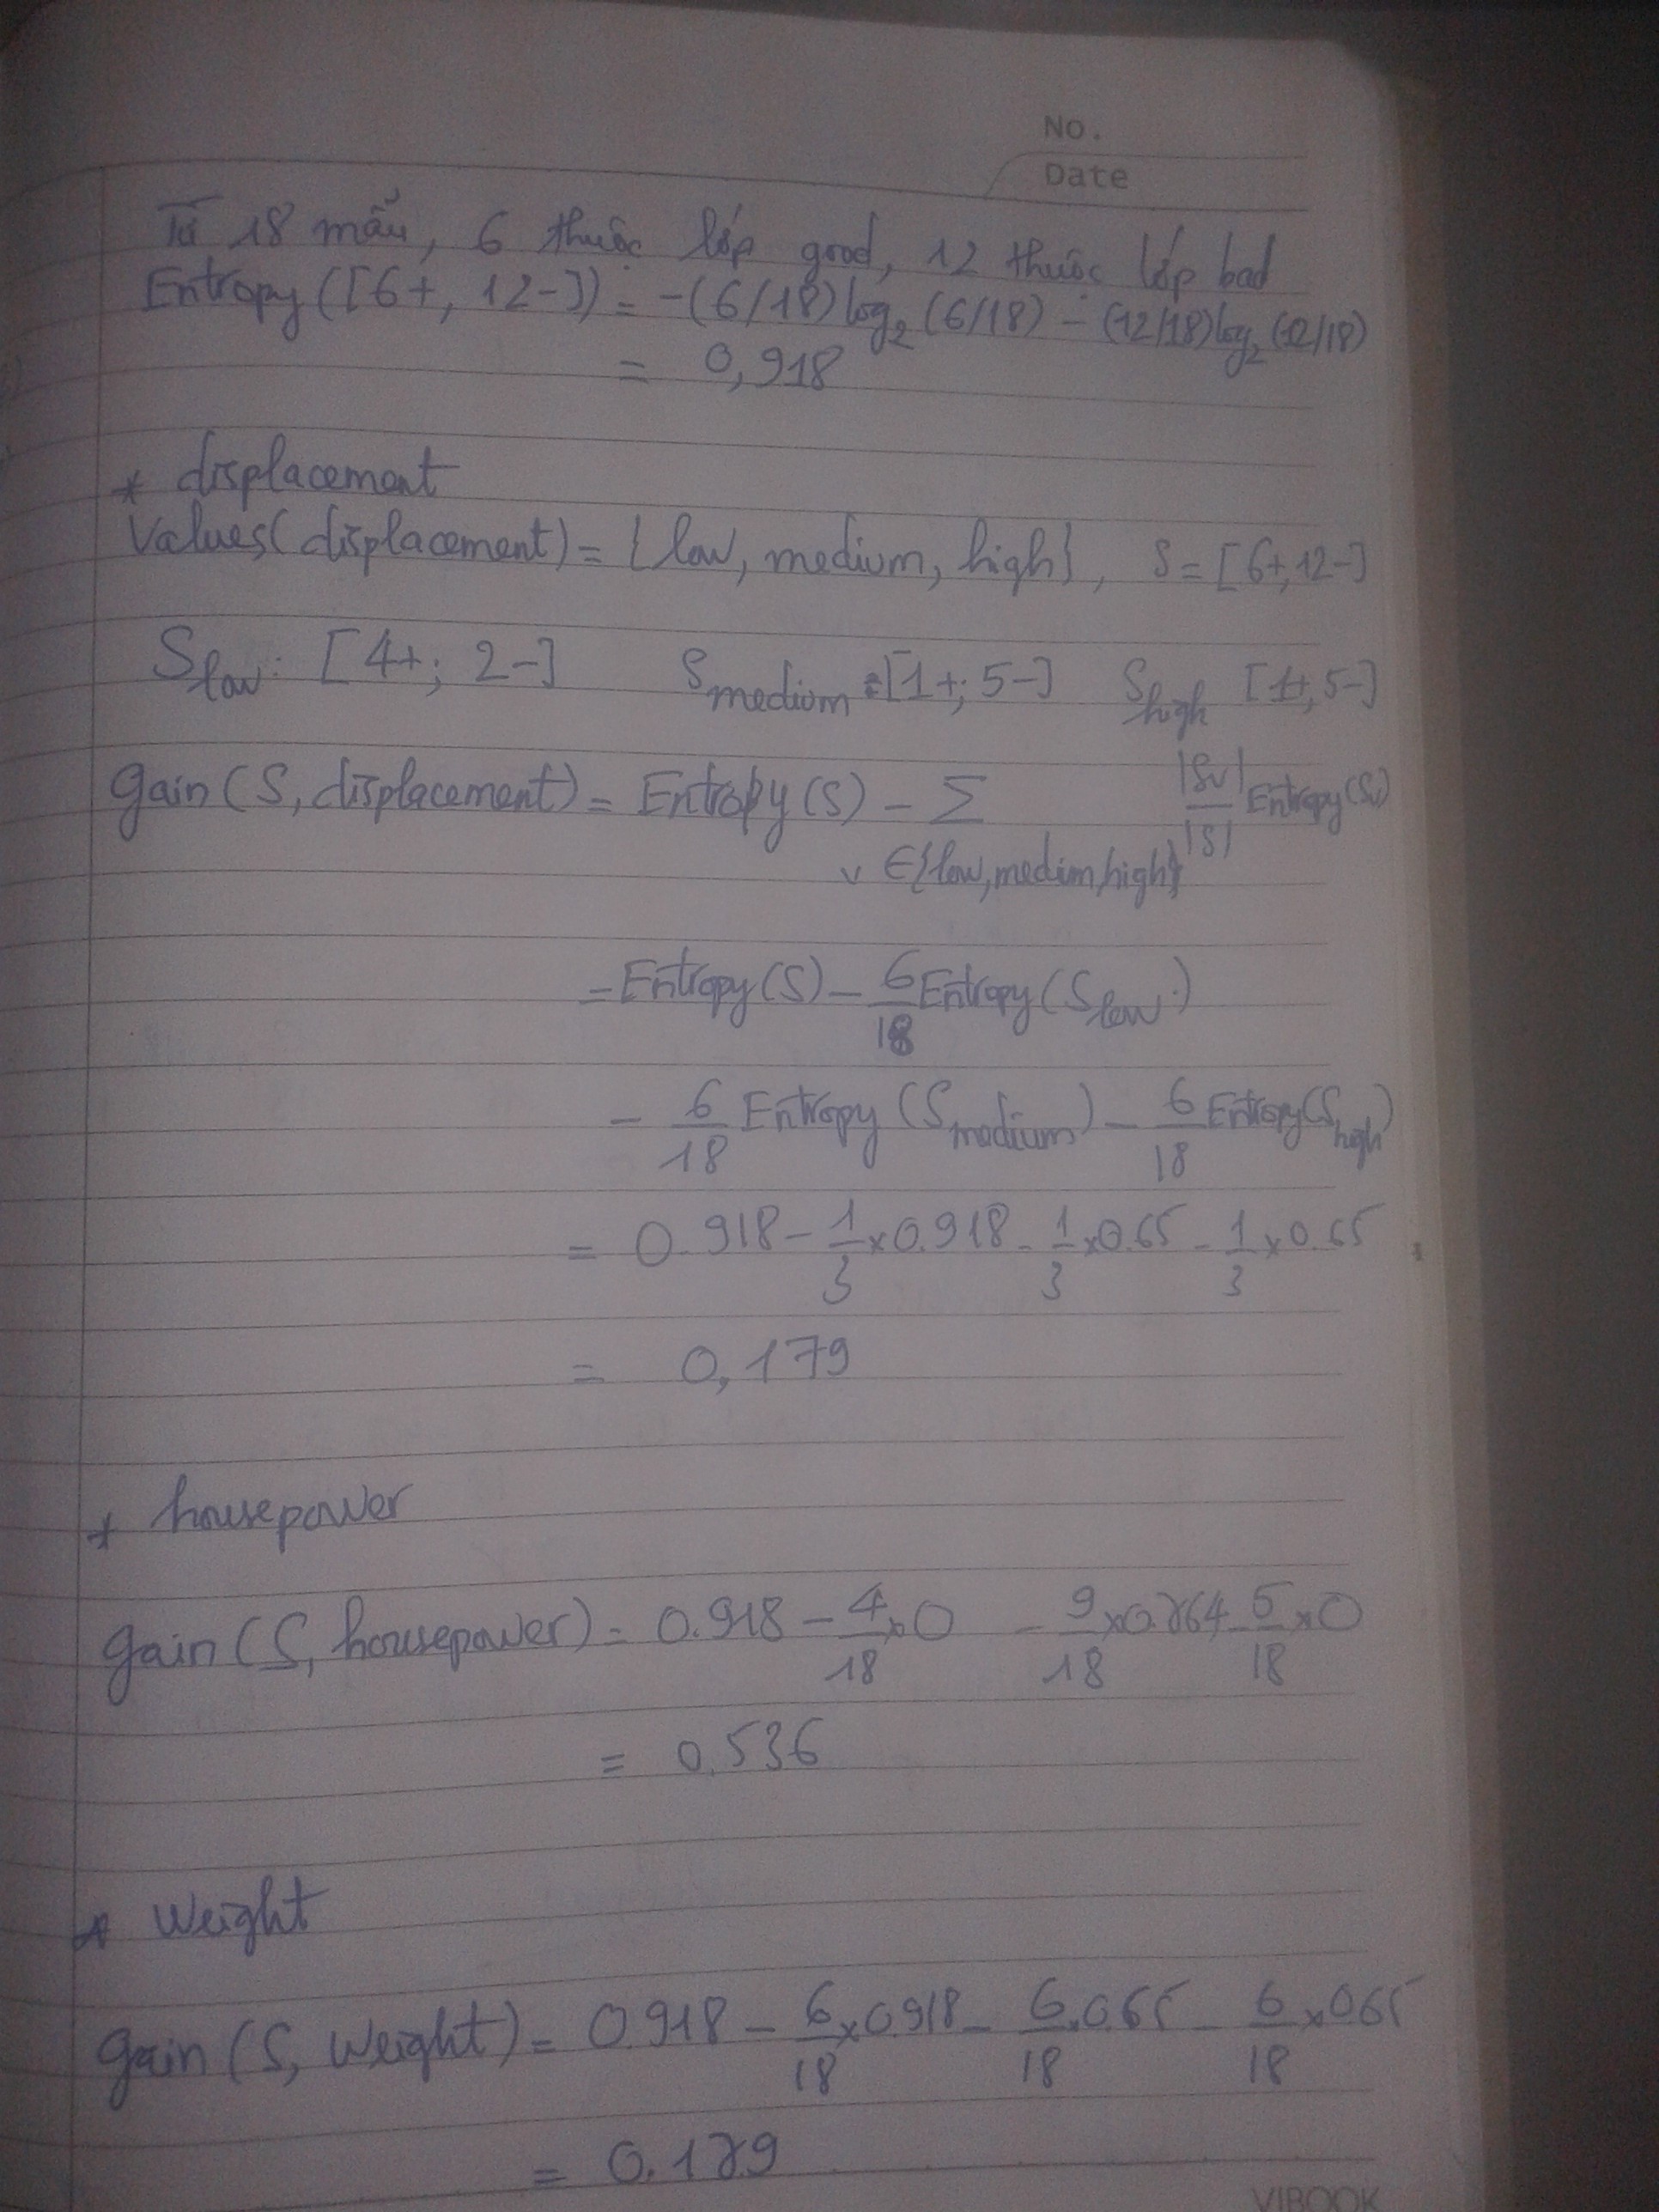 No.
Date
Từ 18 mẫu, 6 thuộc lớp good, 12 thuộc lớp bad
Entropy([6+, 12-]) = -(6/18)log₂(6/18) - (12/18)log₂(12/18)
= 0,918
* displacement
Values(displacement) = {low, medium, high}, S = [6+, 12-]
S_low: [4+; 2-] S_medium = [1+; 5-] S_high [1+, 5-]
Gain(S, displacement) = Entropy(S) - Σ |Sv|/|S| Entropy(Sv)
v ∈ {low, medim, high}
= Entropy(S) - 6/18 Entropy(S_low)
- 6/18 Entropy(S_medium) - 6/18 Entropy(S_high)
= 0.918 - 1/3 x 0.918 - 1/3 x 0.65 - 1/3 x 0.65
= 0,179
* housepower
Gain(S, housepower) = 0.918 - 4/18 x 0 - 9/18 x 0.764 - 5/18 x 0
= 0.536
* Weight
Gain(S, Weight) = 0.918 - 6/18 x 0.918 - 6/18 . 0.65 - 6/18 x 0.65
= 0.179
VIBOOK